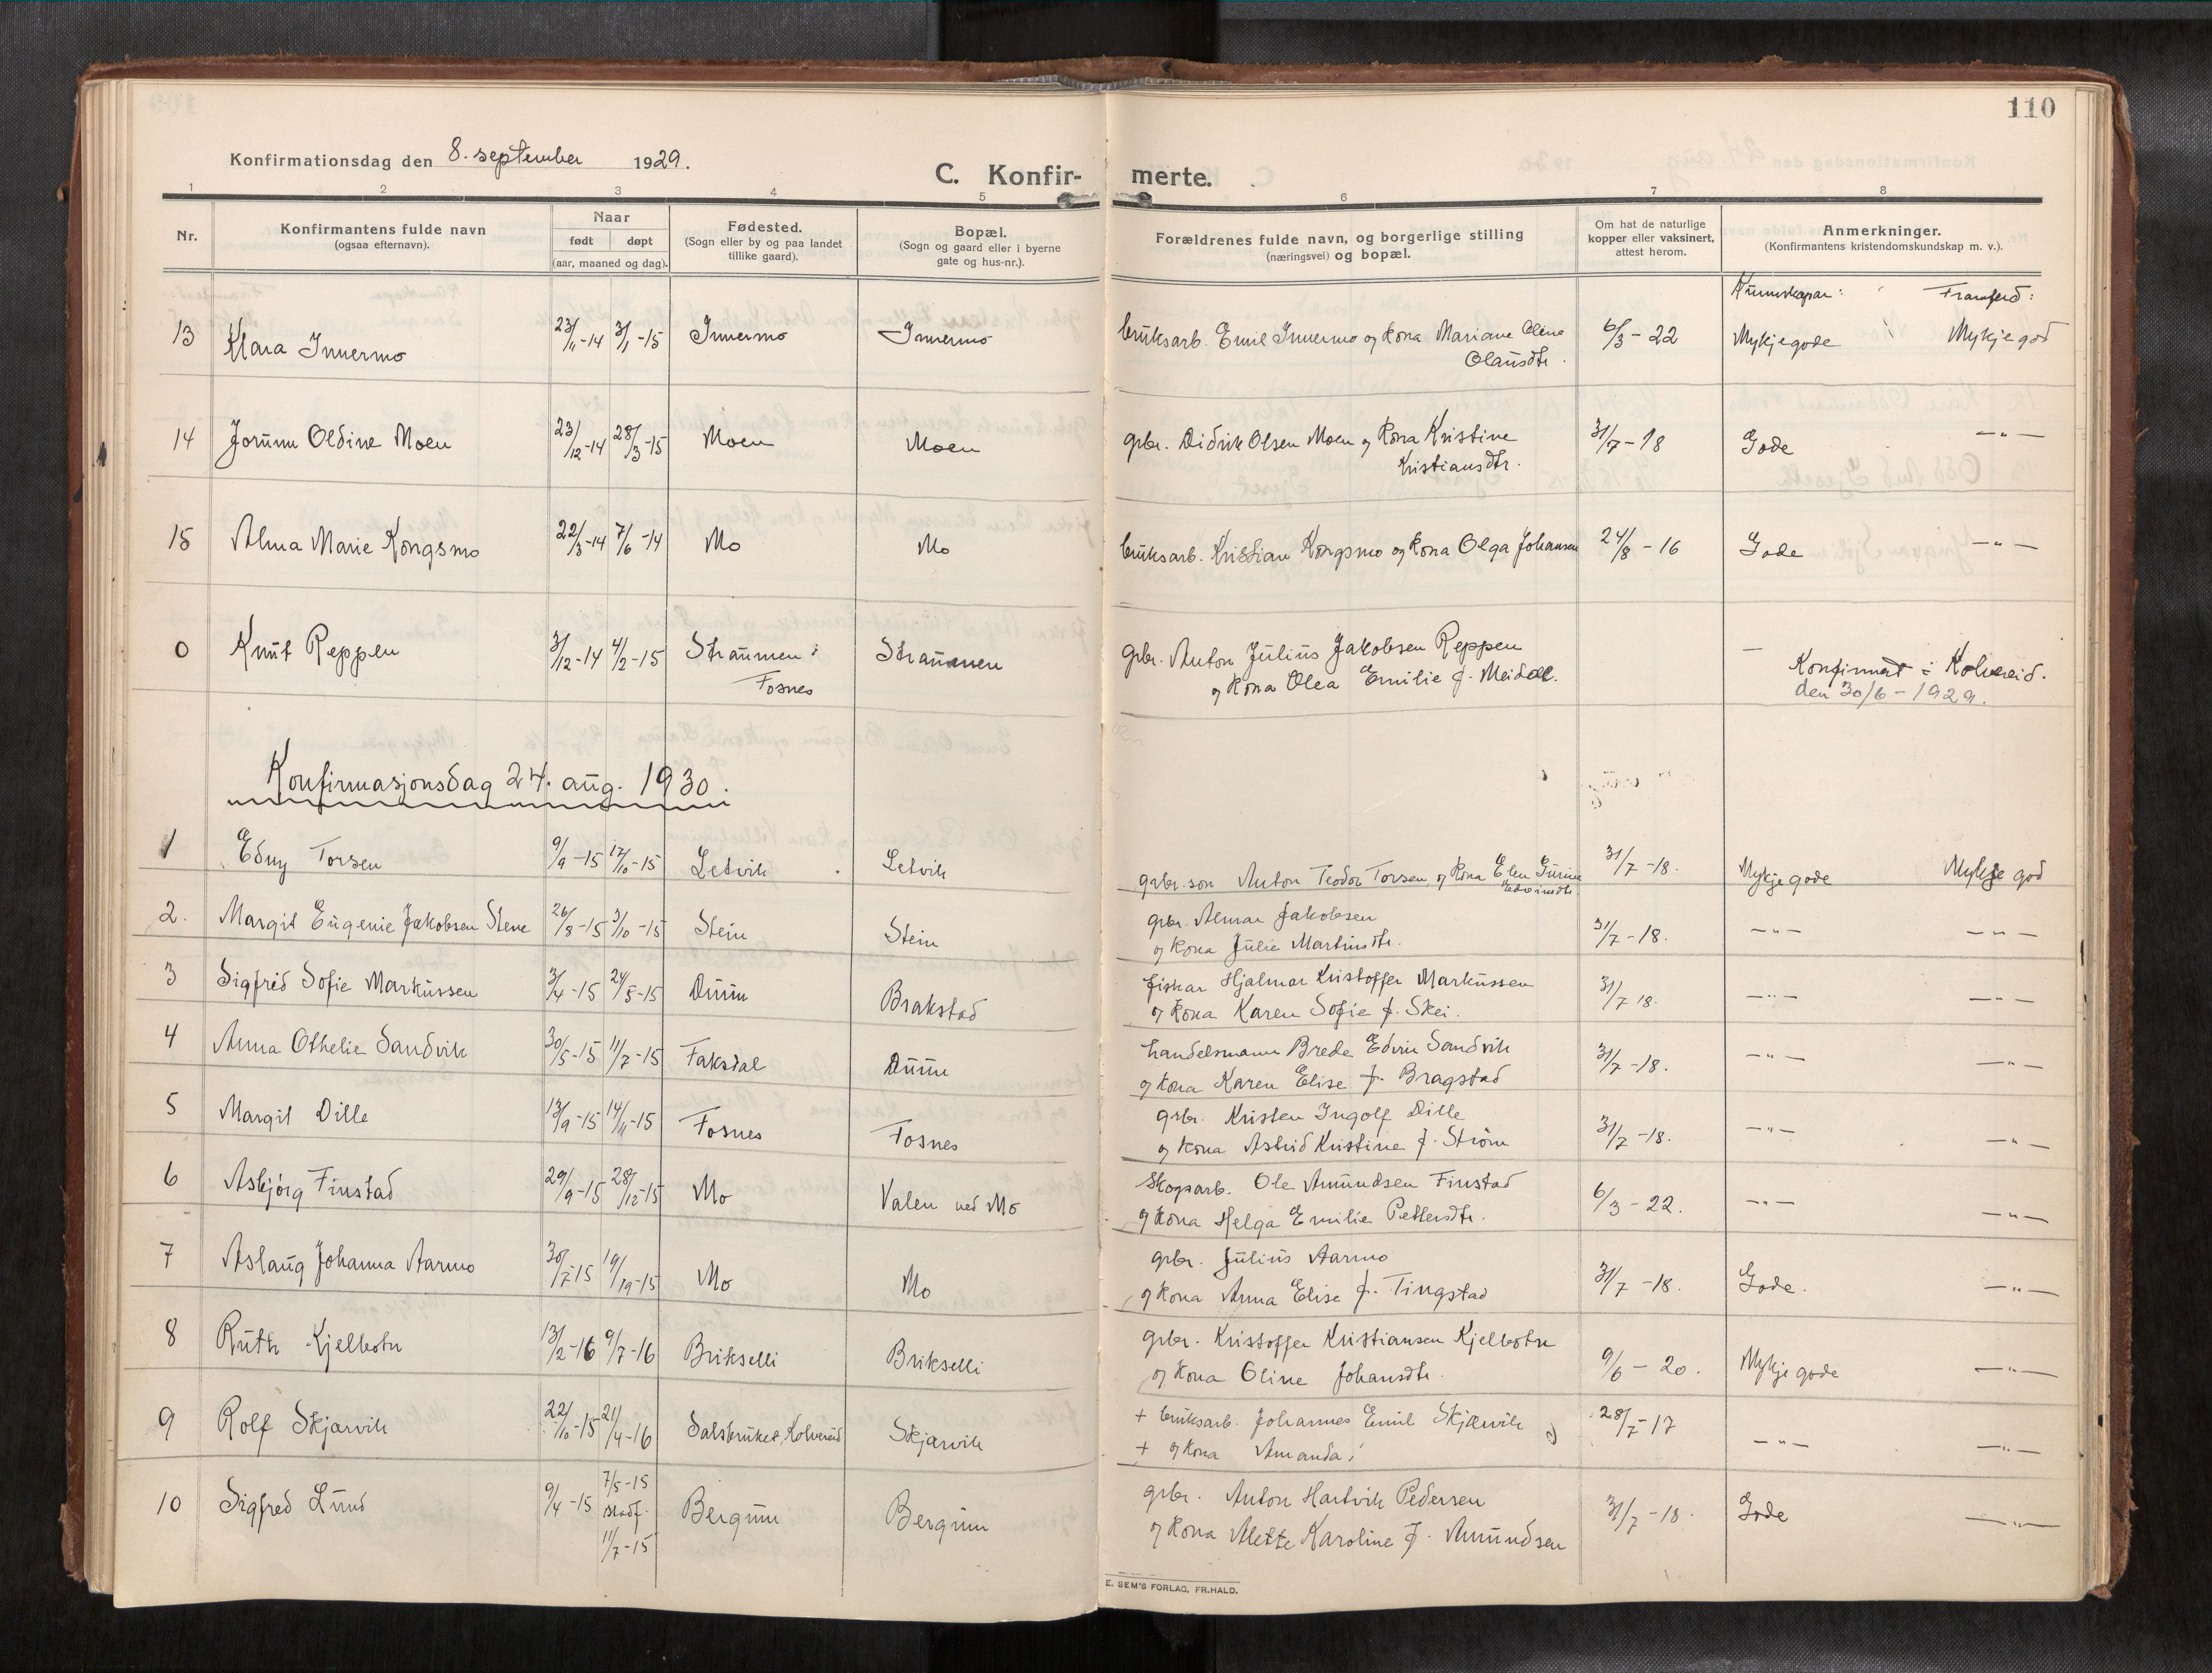 110
Konfirmationsdag den 8. september 1929.
C. Konfirmerte.
1 2 3 4 5 6 7 8
Nr.
Konfirmantens fulde navn
(ogsaa efternavn).
Naar
født døpt
(aar, maaned og dag).
Fødested.
(Sogn eller by og paa landet
tillike gaard).
Bopæl.
(Sogn og gaard eller i byerne
gate og hus-nr.).
Forældrenes fulde navn, og borgerlige stilling
(næringsvei) og bopæl.
Om hat de naturlige
kopper eller vaksinert,
attest herom.
Anmerkninger.
(Konfirmantens kristendomskundskap m. v.).
Kunnskapar: Framferd:
13 Klara Innermo 23/11-14 3/1-15 Innermo Innermo bruksarb. Emil Innermo og kona Mariane Oline 6/3-22 Mykje gode Mykje god
Olausdtr.
14 Jorunn Oldine Moen 23/12-14 28/3-15 Moen Moen grbr. Didrik Olsen Moen og kona Kristine 31/7-18 Gode -"-
Kristiansdtr.
15 Alma Marie Kongsmo 22/3-14 7/6-14 Mo Mo bruksarb. Kristian Kongsmo og kona Olga Johansen 24/8-16 Gode -"-
0 Knut Reppen 3/12-14 4/2-15 Straumen i Straumen grbr. Anton Julius Jakobsen Reppen — Konfirmert i Kolvereid.
Fosnes og kona Olea Emilie f. Meidell. den 30/6-1929.
Konfirmasjonsdag 24. aug. 1930.
1 Edny Torsen 9/9-15 17/10-15 Letvik Letvik grbr.son Anton Teodor Torsen, og kona Elen Gurine 31/7-18. Mykje gode Mykje god
Edvindtr.
2. Margit Eugenie Jakobsen Stene 26/8-15 3/10-15 Stein Stein grbr. Almar Jakobsen 31/7-18. -"- -"-
og kona Julie Martinsdtr.
3 Sigfrid Sofie Markussen 3/4-15 24/5-15 Duun Brakstad fiskar Hjalmar Kristoffer Markussen 31/7 18. -"- -"-
og kona Karen Sofie f. Skei.
4 Anna Othelie Sandvik 30/5-15 11/7-15 Faksdal Duun handelsmann Brede Edvin Sandvik 31/7-18. -"- -"-
og kona Karen Elise f. Bragstad
5 Margit Dille 13/9-15 14/11-15 Fosnes Fosnes grbr. Kristen Ingolf Dille 31/7-18. -"- -"-
og kona Astrid Kristine f. Strøm
6 Asbjørg Finstad 29/9-15 28/12-15 Mo Valen ved Mo Skogarb. Ole Amundsen Finstad 6/3-22. -"- -"-
og kona Helga Emilie Pettersdtr.
7 Aslaug Johanna Aarmo 30/7-15 19/19-15 Mo Mo grbr. Julius Aarmo 31/7-18. Gode. -"-
og kona Anna Elise f. Tingstad
8 Ruth Kjelbotn 13/2-16 9/7-16 Brikselli Brikselli grbr. Kristoffer Kristiansen Kjelbotn 9/6-20. Mykje gode -"-
og kona Oline Johansdtr.
9 Rolf Skjærvik 22/10-15 21/4-16 Salsbruket, Kolvereid Skjærvik + bruksarb. Johannes Emil Skjærvik 28/7-17 -"- -"-
+ og kona Amanda
10 Sigfred Lund 9/4-15 7/5-15 stadf. 11/7-15 Bergum Bergum grbr. Anton Hartvik Pedersen 31/7-18. Gode -"-
og kona Mette Karoline f. Amundsen
E. SEM'S FORLAG, FR.HALD.